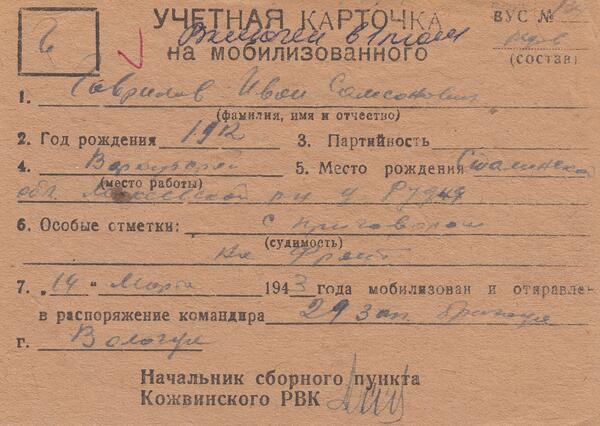 УЧЕТНАЯ КАРТОЧКА
ВУС №
на мобилизованного
(состав)
6
1. Гаврилов Иван Самсонович
(фамилия, имя и отчество)
2. Год рождения 1912 3. Партийность
4. 5. Место рождения Сталинской
(место работы)
обл. Макеевской р-н
6. Особые отметки: с приговором
(судимость)
на фронт
7. „14" Марта 1943 года мобилизован и отправлен
в распоряжение командира 29 зап. бригады
г. Вологда
Начальник сборного пункта
Кожвинского РВК